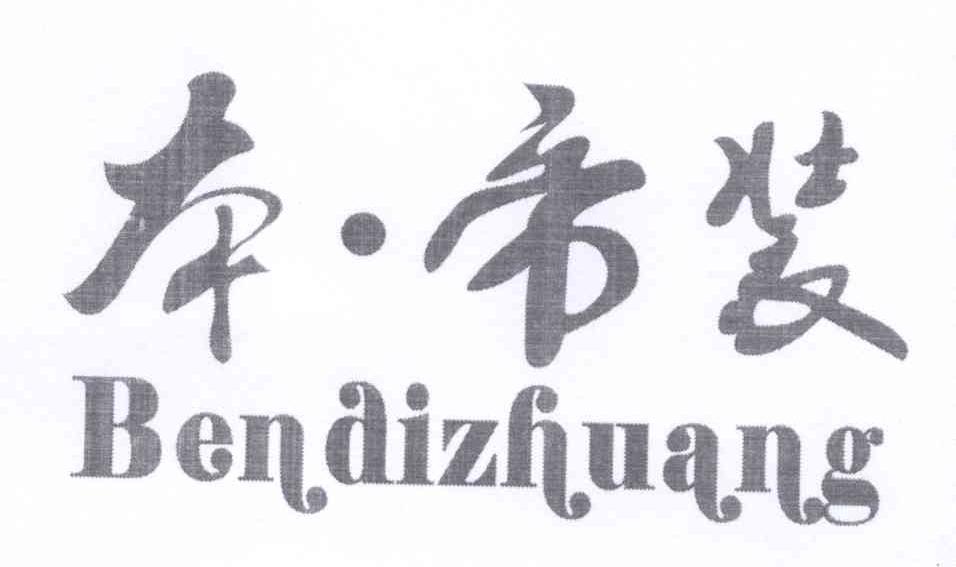 本·帝装
Bendizhuang